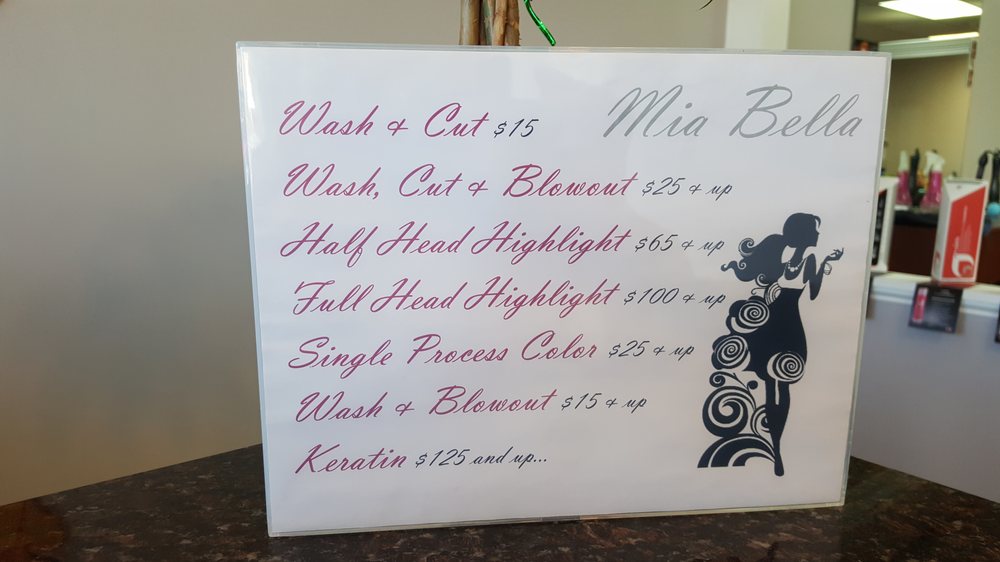 Mia Bella
Wash & Cut $15
Wash, Cut & Blowout $25 & up
Half Head Highlight $65 & up
Full Head Highlight $100 & up
Single Process Color $25 & up
Wash & Blowout $15 & up
Keratin $125 and up...